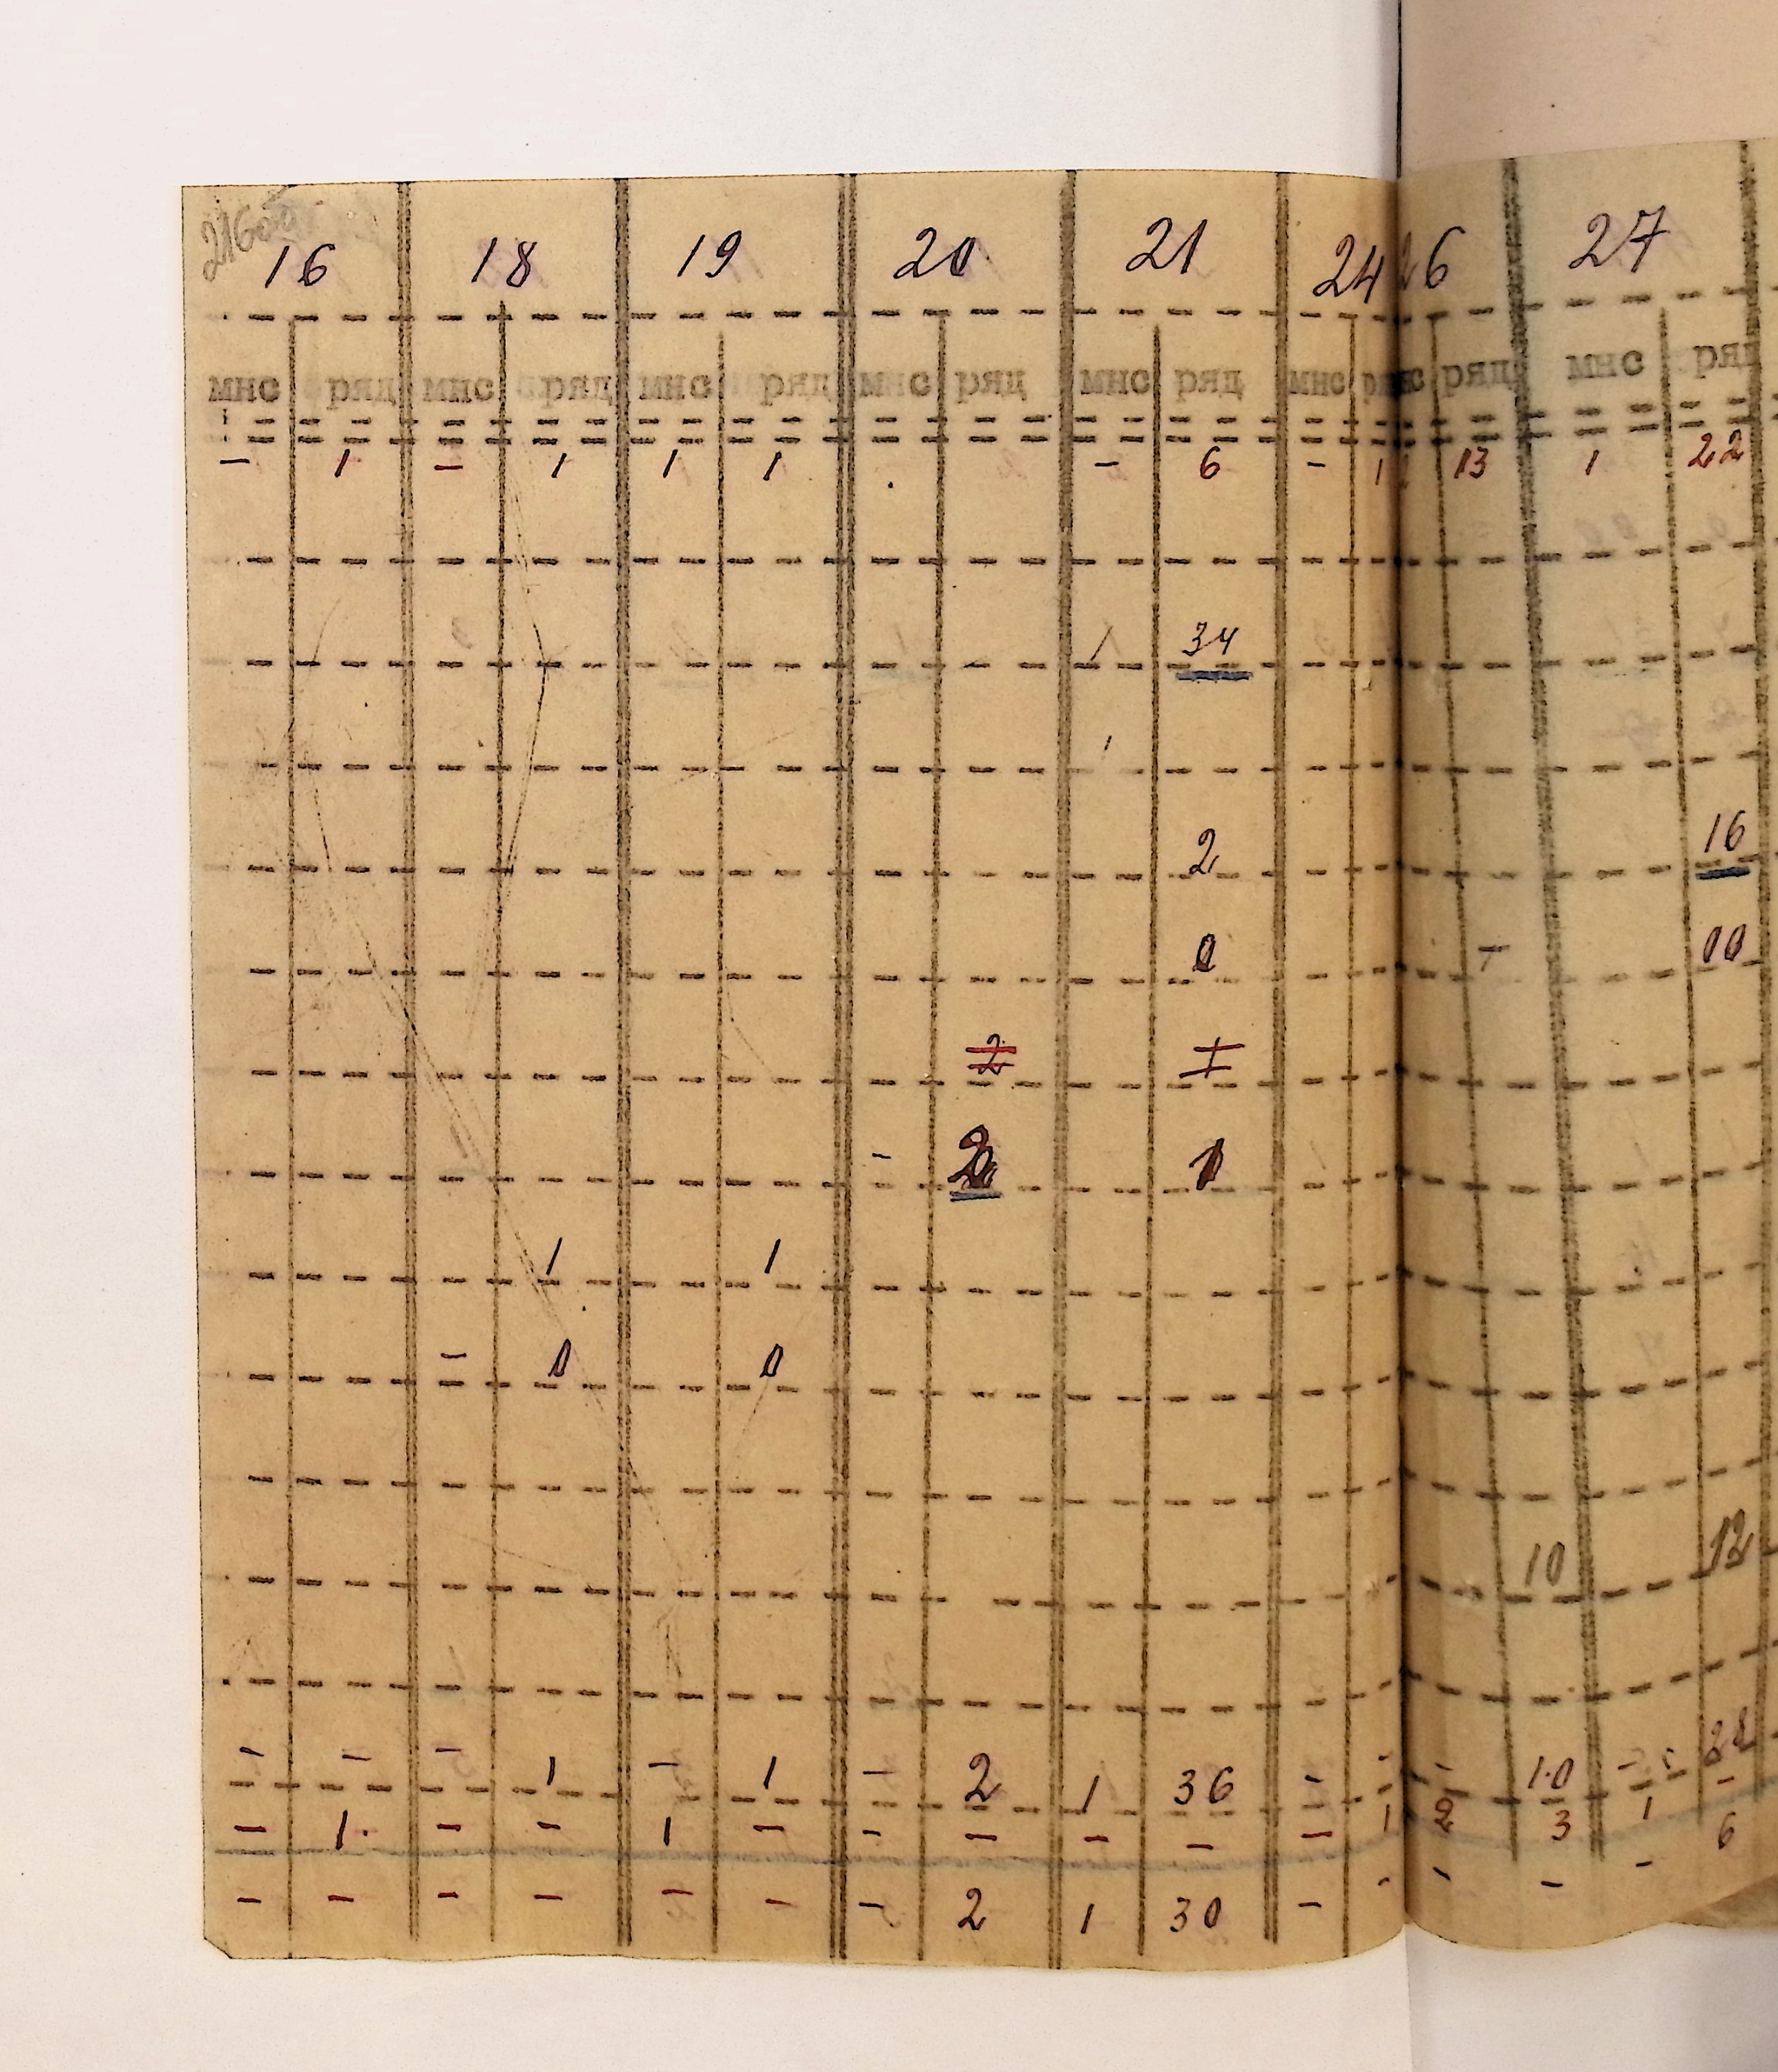 216об
16 18 19 20 21 24 26 27
мнс ряд мнс ряд мнс ряд мнс ряд мнс ряд мнс ряд мнс ряд
- 1 - 1 1 1 - 6 - 1 13 1 22
1 34
2 16
0 00
2 1
- 2
1 1
- 0 0
10 12
- - - 1 - 1 - 2 1 36 - - - 10 -
- 1 - - 1 - - - - - - 1 2 3 1 6
- - - - - - - 2 1 30 - - - - -